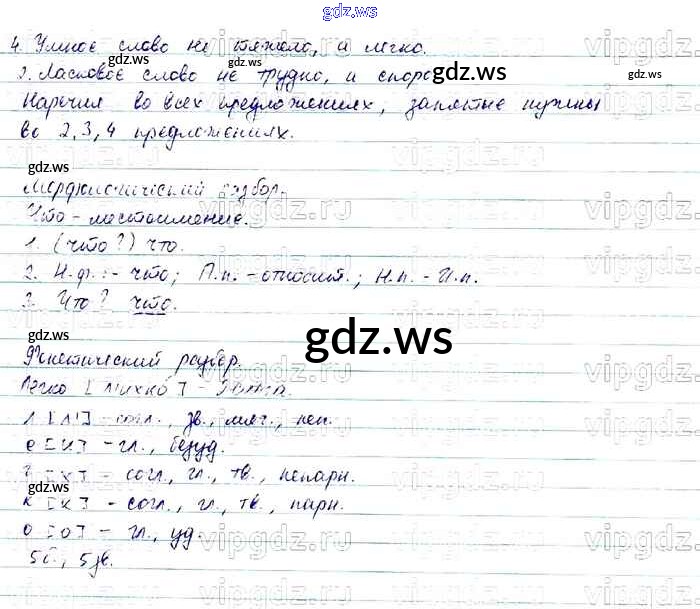 gdz.ws
4. Умное слово не тяжело, а легко.
2. Ласковое слово не трудно, а споро
gdz.ws
Наречия во всех предложениях, запятые нужны
во 2, 3, 4 предложениях.
gdz.ws
Морфологический разбор.
Что - местоимение.
1. (что?) что.
2. Н.ф. - что; П.п. - относит.; Н.п. - И.п.
3. Что? что.
gdz.ws
Фонетический разбор.
Легко [л'ихко́] -
л [л'] - согл., зв., мяг., неп.
е [и] - гл., безуд.
г [х] - согл., гл., тв., непарн.
к [к] - согл., гл., тв., парн.
о [о] - гл., уд.
5 б., 5 зв.
vipgdz.ru